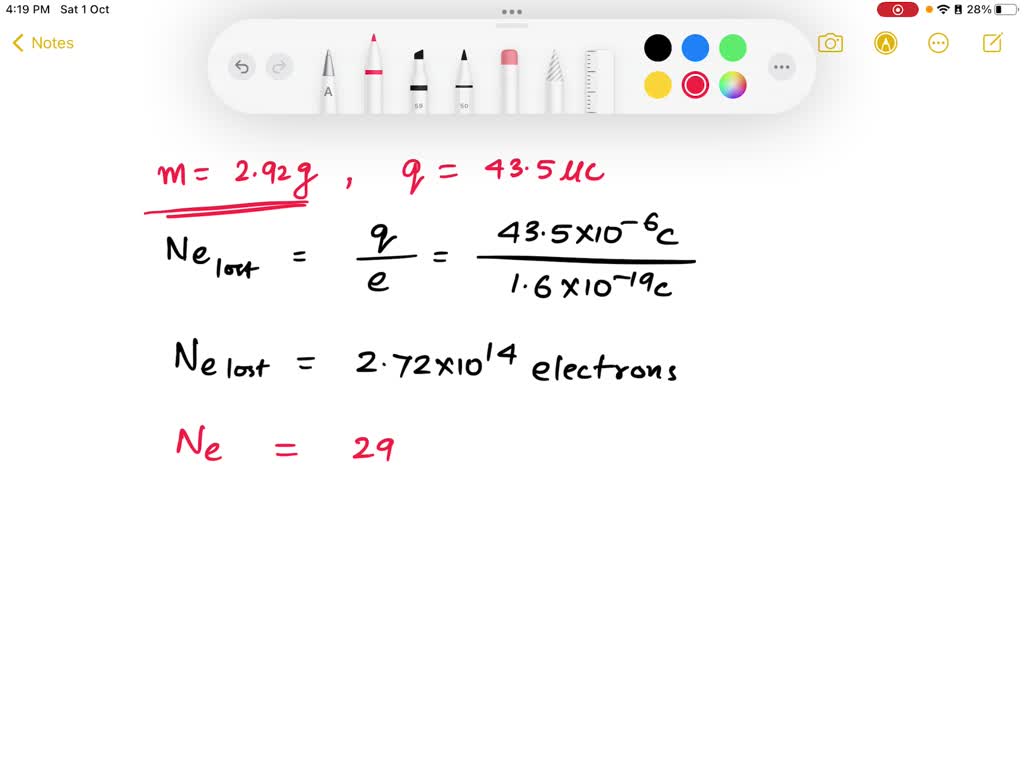 4:19 PM Sat 1 Oct 28%
Notes
A
59 50
m = 2.92g , q = 43.5 μc
Ne lost = q/e = 43.5×10⁻⁶c / 1.6×10⁻¹⁹c
Ne lost = 2.72×10¹⁴ electrons
Ne = 29